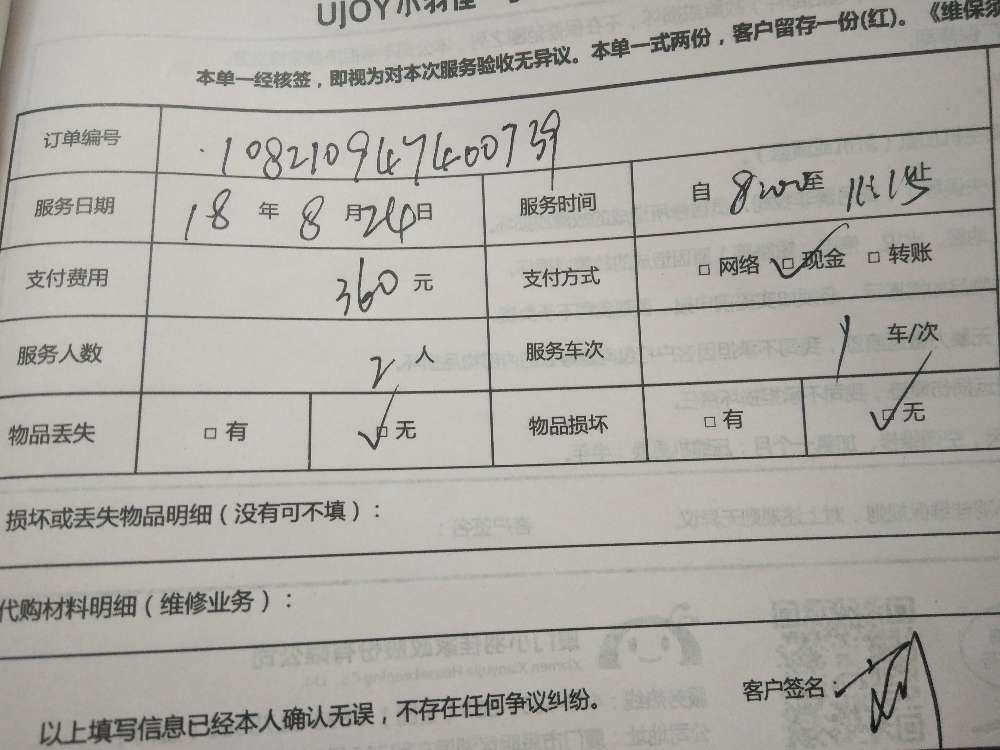 UJOY小羽佳
本单一经核签，即视为对本次服务验收无异议。本单一式两份，客户留存一份(红)。《维保须
订单编号 108210947400739
服务日期 18 年 8 月 24 日 服务时间 自 8:00 至 11:15 止
支付费用 360 元 支付方式 □ 网络 ☑ 现金 □ 转账
服务人数 2 人 服务车次 1 车/次
物品丢失 □ 有 ☑ 无 物品损坏 □ 有 ☑ 无
损坏或丢失物品明细（没有可不填）：
代购材料明细（维修业务）：
客户签名：
以上填写信息已经本人确认无误，不存在任何争议纠纷。